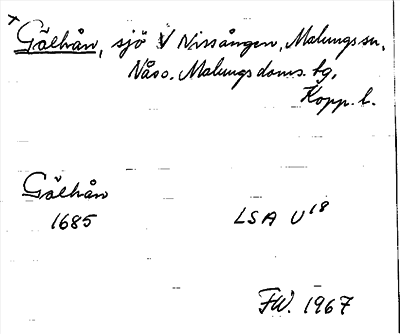 x Gålhån, sjö V Nissången, Malungs sn,
Nås o. Malungs doms. tg,
Kopp. l.
Gålhån
1685 LSA U18
FW. 1967